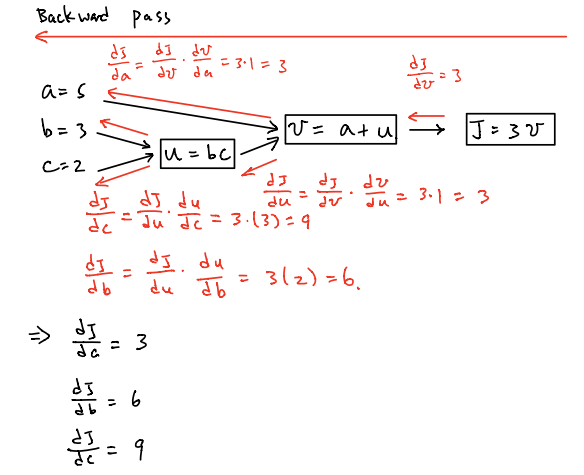 Backward pass
dJ/da = dJ/dv · dv/da = 3·1 = 3
dJ/dv = 3
a = 5
b = 3
c = 2
u = bc
v = a + u
J = 3v
dJ/du = dJ/dv · dv/du = 3·1 = 3
dJ/dc = dJ/du · du/dc = 3·(3) = 9
dJ/db = dJ/du · du/db = 3(2) = 6.
⇒ dJ/da = 3
dJ/db = 6
dJ/dc = 9